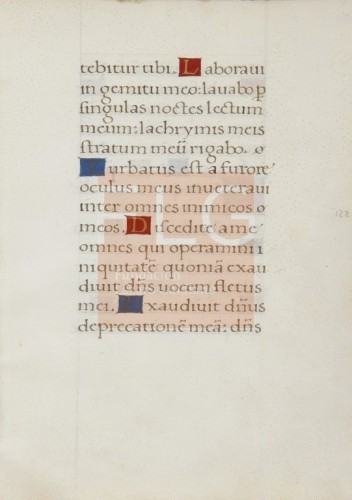 tebitur tibi. Laboraui
in gemitu meo: lauabo p̱
singulas noctes lectum
meum: lachrymis meis
stratum meũ rigabo. o
Turbatus est a furore
oculus meus inueteraui
inter omnes inimicos o
meos. Discedite a me
omnes qui operamini i
niquitatẽ quoniã exau
diuit dñs uocem fletus
mei. Exaudiuit dñus
deprecationẽ meã: dñs
122